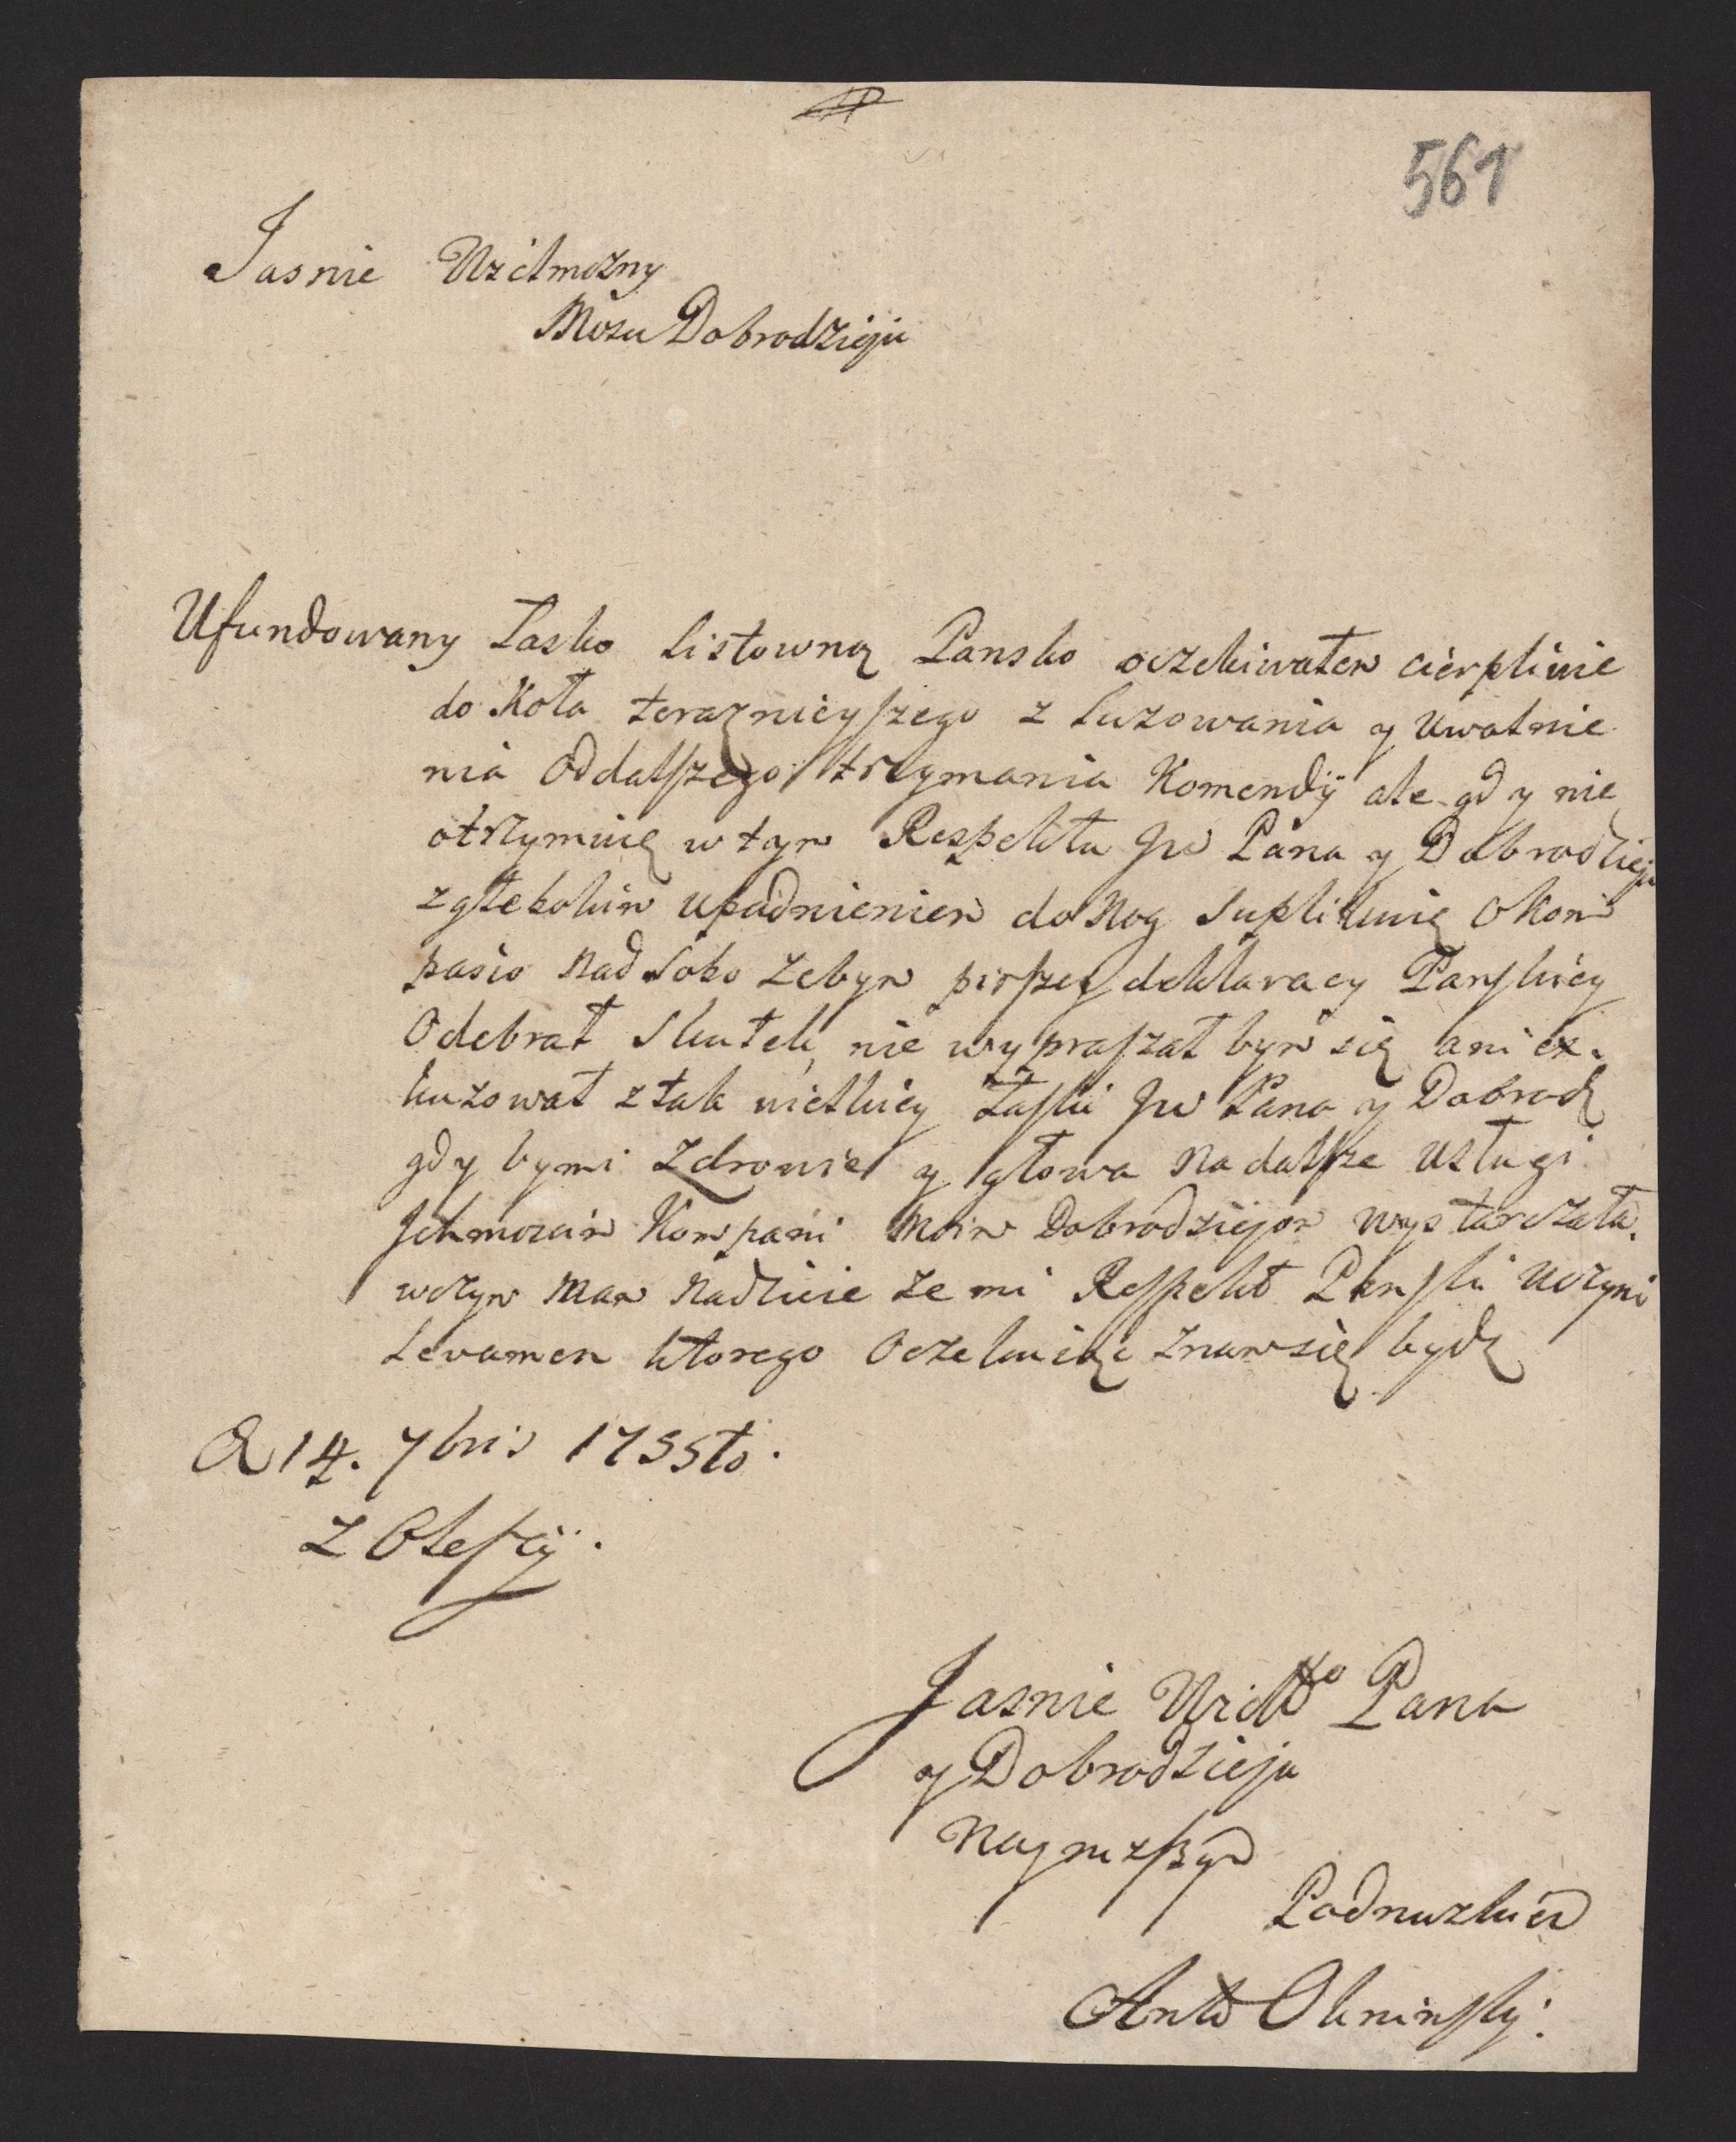 561
Jasnie Wielmozny
Mosu Dobrodzieju
Ufundowany Łasko listowną Pansko oczekiwałem cierpliwie
do Koła teraznieyszego zluzowania y uwolnie
nia oddalszego trzymania Komendÿ ale gdy nie
otrzymuię wtym Respektu JW Pana y Dobrodzieja
zgłebokim upadnieniem do Nog Suplikuię o kom
pasio nad sobo zebym pirszey deklaracy Panskiey
Odebrał Skutek, nie wypraszał bym się ani ex.
kuzował ztak wielkiey Łaski JW Pana y Dobrodz
gdy bymi Zdrowie y głowa na dalsze usługi
Ichmosciow Kompani moim Dobrodziejom wystarczała.
wczym mam nadzieie ze mi Respekt Panski uczyni
Levamen ktorego Oczekuiąc znam się bydz
D 14. 7bris 1755to.
Z Oleszÿ.
Jasnie Wielgo Pana
y Dobrodzieja
Naynizszym
Podnuzkiem
Anto Okninsky.